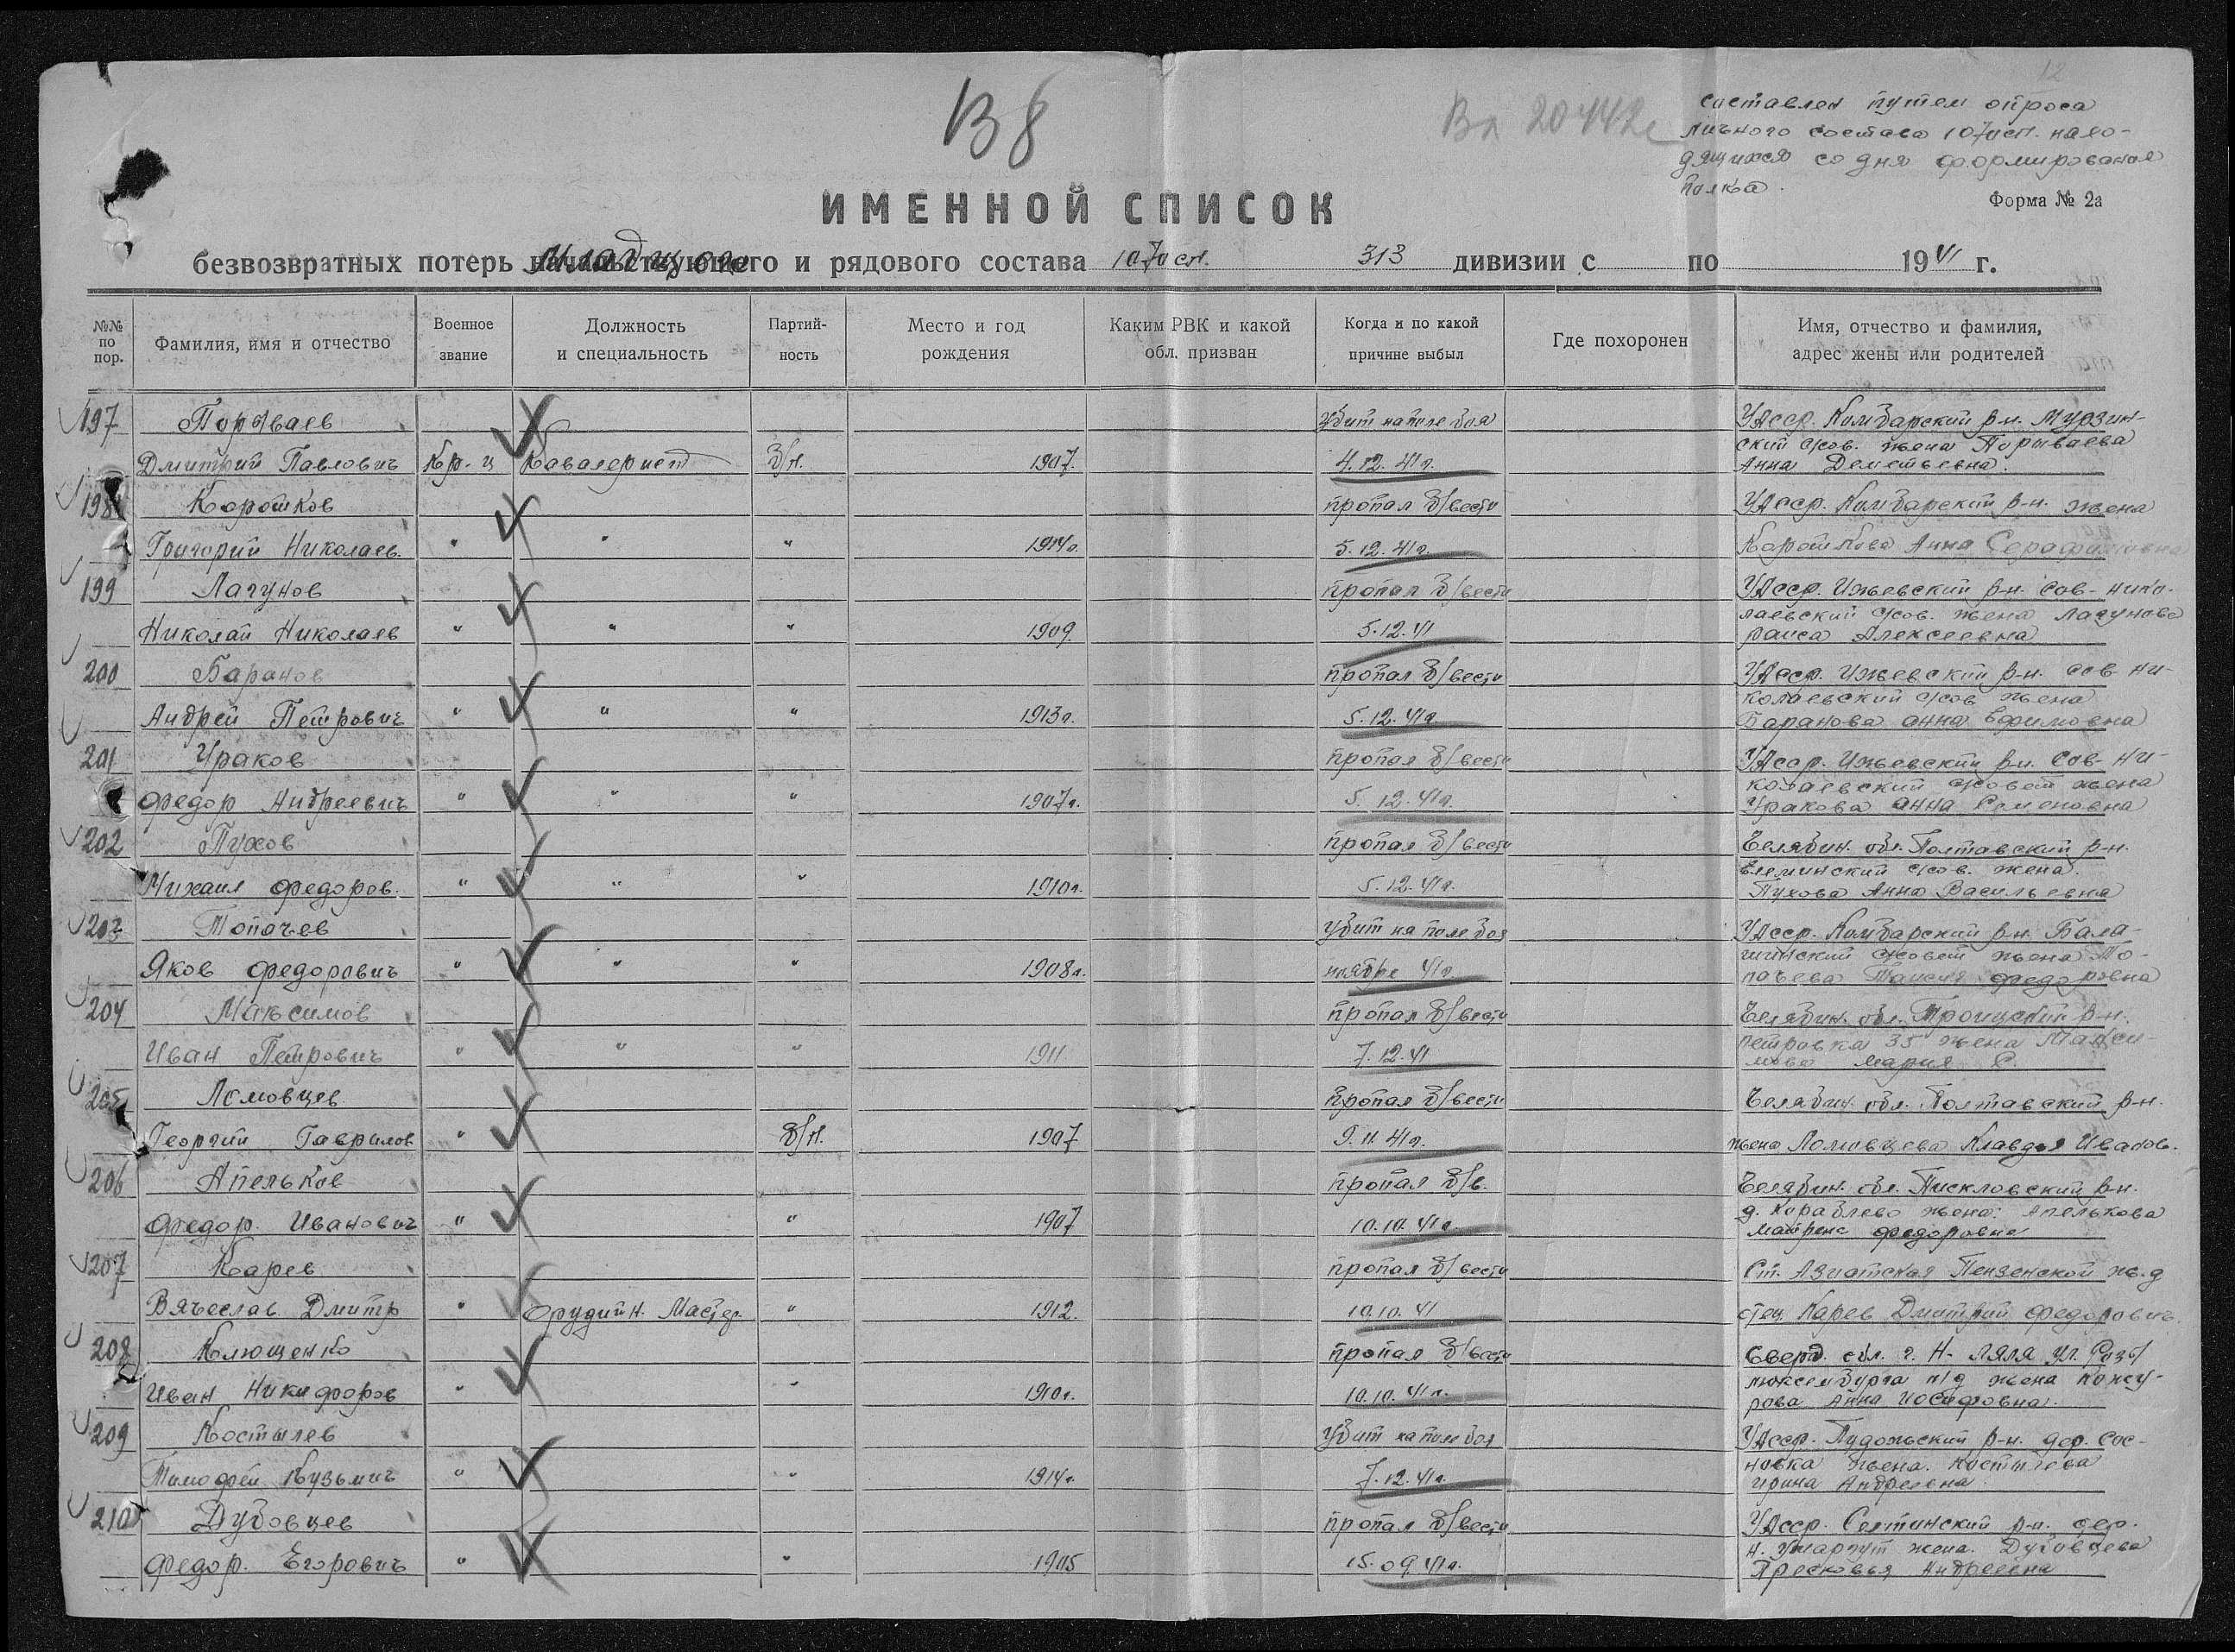 12
В 8
Вх 20442с
составлен путем опроса
личного состава 1070 сп. нахо-
дящихся со дня формирования
полка.
Форма № 2а
ИМЕННОЙ СПИСОК
безвозвратных потерь младшего и рядового состава 1070 сп. 313 дивизии с по 1941 г.
№№ по пор. Фамилия, имя и отчество Военное звание Должность и специальность Партий- ность Место и год рождения Каким РВК и какой обл. призван Когда и по какой причине выбыл Где похоронен Имя, отчество и фамилия, адрес жены или родителей
197 Порываев убит на поле боя УАсср. Камбарский р-н. Мурзин-
ский с/сов. жена Порываева
Дмитрий Павлович Кр-ц Кавалерист б/п. 1907. 4.12.41г. Анна Деметьевна.
198 Коротков пропал б/вести УАсср. Камбарский р-н. жена
Григорий Николаев. " " " 1914г. 5.12.41г. Короткова Анна Серафимовна
199 Лагунов пропал б/вести УАсср. Ижевский р-н. Сов-Нико-
лаевский с/сов. жена Лагунова
Николай Николаев " " " 1909 5.12.41 раиса Алексеевна
200 Баранов пропал б/вести УАсср. Ижевский р-н. Сов-Ни-
колаевский с/сов жена
Андрей Петрович " " " 1913г. 5.12.41г Баранова анна Ефимовна
201 Ураков пропал б/вести УАсср. Ижевский р-н. Сов-Ни-
колаевский с/совет жена
Федор Андреевич " " " 1907г. 5.12.41г. Уракова анна Семеновна
202 Пухов пропал б/вести Челябин. обл. Полтавский р-н.
с/сов. жена.
Михаил Федоров. " " " 1910г. 5.12.41г. Пухова Анна Васильевна
203 Топачев убит на поле боя УАсср. Камбарский р-н. Бала-
с/совет жена То-
Яков Федорович " " " 1908г. ноябре 41г. пачева Таисия Федоровна
204 Максимов пропал б/вести Челябин. обл. Троицкий р-н.
петровка 35 жена Макси-
Иван Петрович " " " 1911. 7.12.41 мова Мария С.
205 Ломовцев пропал б/вести Челябин. обл. Полтавский р-н.
Георгий Гаврилов " б/п. 1907 9.11.41г. жена Ломовцева Клавдия Иванов.
206 Апельков пропал б/в. Челябин. обл. р-н.
д. Кораблево жена: Апелькова
Федор. Иванович " " 1907 10.10.41г. Матрена Федоровна
207 Карев пропал б/вести Ст. Азиатская Пензенской ж.д
Вячеслав Дмитр " Орудийн. Мастер. " 1912. 10.10.41 отец Карев Дмитрий Федорович.
208 Клющенко пропал б/вести Сверд. обл. г. Н-Ляля ул. Розы
люксембурга п/д жена
Иван Никифоров " " 1910г. 10.10.41г. рова Анна Иосифовна.
209 Костылев убит на поле боя УАсср. р-н. дер. Сос-
новка жена. Костылева
Тимофей Кузьмич " " 1914г. 7.12.41г. ирина Андреевна
210 Дубовцев пропал б/вести УАсср. Селтинский р-н. дер.
Н. жена. Дубовцева
Федор. Егорович " " 1905 15.09.41г. Пресковья Андреевна